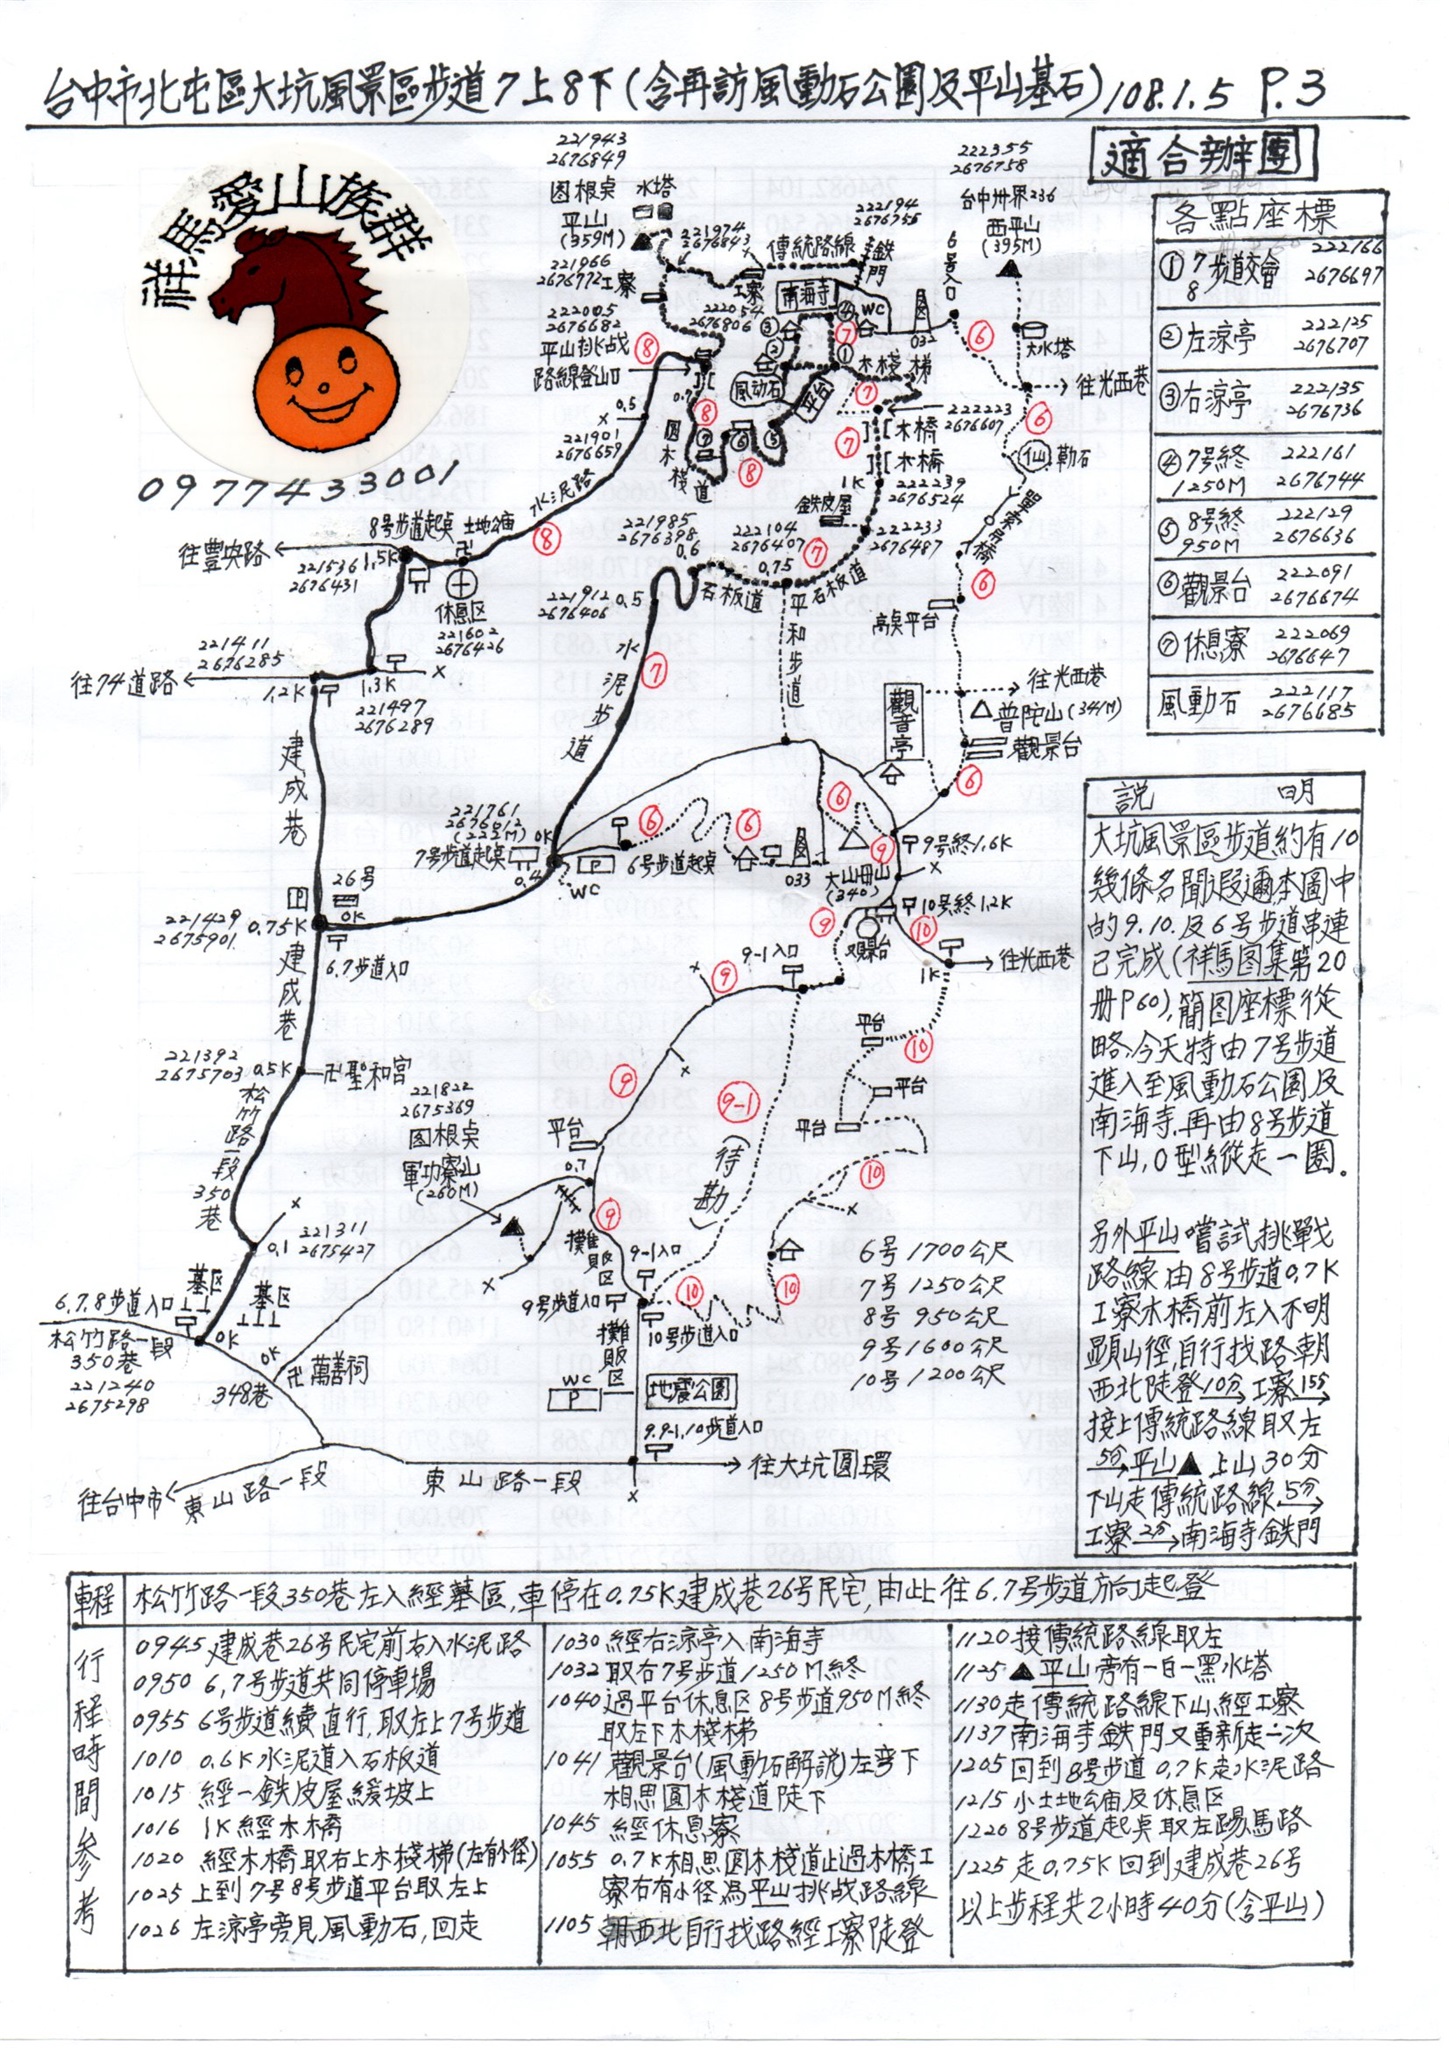 台中市北屯區大坑風景區步道7上8下(含再訪風動石公園及平山基石)108.1.5 P.3
適合辦團
祥馬愛山族群
0977433001
221943
2676849
图根桌
平山
(359M)
水塔
221974
2676843
傳統路線
222194
2676755
鉄門
222355
2676758
台中州界236
西平山
(395M)
221966
2676772
工寮
工寮
222054
2676806
南海寺
WC
032
6号入口
大水塔
往光西巷
222005
2676682
平山挑战
路線登山口
風动石
平台
木棧梯
222223
2676607
木橋
木橋
1K
222239
2676524
仙
勒石
單索吊橋
0.5
221901
2676659
0.7
圆木棧道
水泥路
鉄皮屋
222233
2676487
8号步道起桌
土地公庙
1.5K
往豊央路
221536
2676431
休息区
221602
2676426
221985
2676398
0.6
222104
2676407
0.75
石板道
石板道
221912
2676406
0.5
平和步道
高桌平台
221411
2676285
往74道路
1.2K
1.3K
221497
2676289
水泥步道
觀音亭
往光西巷
普陀山(341M)
觀景台
建成巷
221761
2676012
(222M)
0K
7号步道起桌
0.4
P
WC
6号步道起桌
033
9号終1.6K
大山冊山
(340)
10号終1.2K
观景台
往光西巷
1K
26号
0K
221429
2675901
0.75K
6.7步道入口
建成巷
9-1入口
平台
平台
平台
221392
2675703
0.5K
聖和宮
松竹路一段350巷
221822
2675369
图根桌
軍功寮山
(260M)
平台
0.7
9-1
(待勘)
攤販区
9-1入口
9号步道入口
10号步道入口
0.1
221311
2675427
墓区
墓区
6.7.8步道入口
松竹路一段
350巷
221240
2675298
0K
0K
萬善祠
348巷
WC
P
攤販区
地震公園
9.9-1.10步道入口
往大坑圓環
東山路一段
東山路一段
往台中市
6号 1700公尺
7号 1250公尺
8号 950公尺
9号 1600公尺
10号 1200公尺
各點座標
① 7 8 步道交會 222166 2676697
② 左涼亭 222125 2676707
③ 右涼亭 222135 2676736
④ 7号終 1250M 222161 2676744
⑤ 8号終 950M 222129 2676636
⑥ 觀景台 222091 2676674
⑦ 休息寮 222069 2676647
風動石 222117 2676685
説 明
大坑風景區步道約有10
幾條名聞遐邇本圖中
的9.10.及6号步道串連
已完成(祥馬图集第20
册P60),簡图座標從
略.今天特由7号步道
進入至風動石公園及
南海寺.再由8号步道
下山,O型縱走一圈.
另外平山嚐試挑戰
路線由8号步道0.7K
工寮木橋前左入不明
顕山徑,自行找路朝
西北陡登10分→工寮15分→
接上傳統路線取左
5分→平山▲上山30分
下山走傳統路線5分→
工寮2分→南海寺鉄門
車程 松竹路一段350巷左入經墓區,車停在0.75K建成巷26号民宅,由此往6.7号步道方向起登
行程時間參考
0945 建成巷26号民宅前右入水泥路
0950 6,7号步道共同停車場
0955 6号步道續直行,取左上7号步道
1010 0.6K水泥道入石板道
1015 經一鉄皮屋緩坡上
1016 1K經木橋
1020 經木橋取右上木棧梯(左有小徑)
1025 上到7号8号步道平台取左上
1026 左涼亭旁見風動石,回走
1030 經右涼亭入南海寺
1032 取右7号步道1250M終
1040 過平台休息区8号步道950M終
取左下木棧梯
1041 觀景台(風動石解説)左弯下
相思圓木棧道陡下
1045 經休息寮
1055 0.7K相思圆木棧道止過木橋工
寮右有小徑為平山挑战路線
1105 朝西北自行找路經工寮陡登
1120 接傳統路線取左
1125 ▲平山旁有一白一黑水塔
1130 走傳統路線下山經工寮
1137 南海寺鉄門又重新走一次
1205 回到8号步道0.7K走水泥路
1215 小土地公庙及休息区
1220 8号步道起桌取左踢馬路
1225 走0.75K回到建成巷26号
以上步程共2小時40分(含平山)